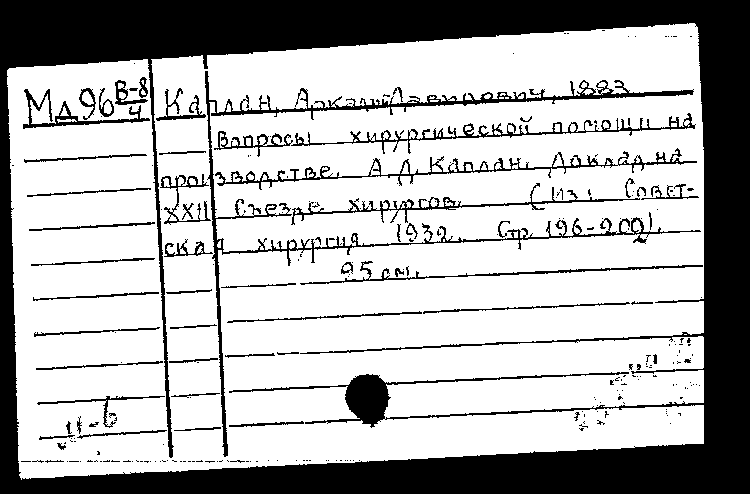 Мд96 В-8/4 Каплан, Аркадий Давидович, 1883
Вопросы хирургической помощи на
производстве. А.Д. Каплан. Доклад на
XXII Съезде хирургов (Из: Совет-
ская хирургия 1932. Стр 196-202).
25 см.